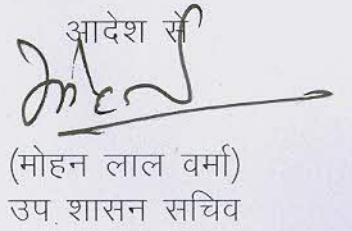 आदेश से
मोहन
(मोहन लाल वर्मा)
उप शासन सचिव